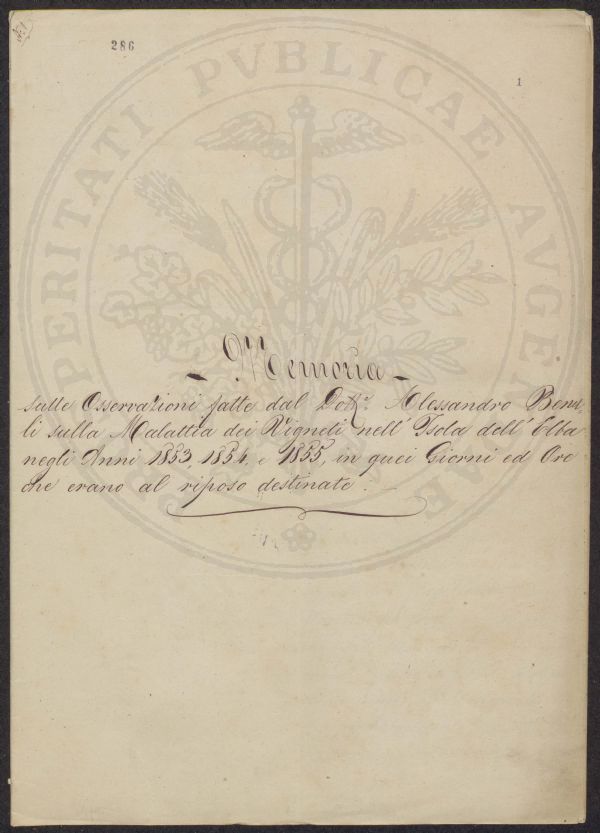 N. 1
286
1
- Memoria -
sulle Osservazioni fatte dal Dott.e Alessandro
li sulla Malattia dei Vigneti nell' Isola dell' Elba
negli Anni 1853, 1854, e 1855, in quei Giorni ed Ore
che erano al riposo destinate.
PERITATI PVBLICAE AVGEN